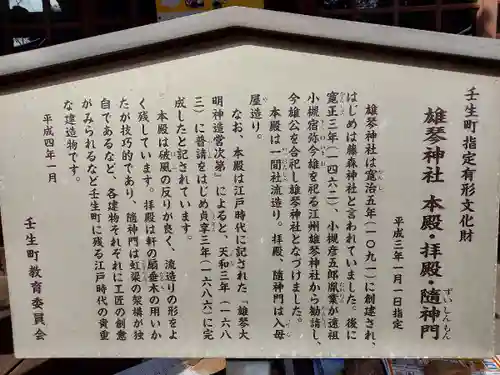 壬生町指定有形文化財
雄琴神社 本殿・拝殿・随神門
ずいしんもん
平成三年一月一日指定
雄琴神社は寛治五年(一〇九一)に創建され、
はじめは藤森神社と言われていました。後に
寛正三年(一四六二)、小槻彦五郎胤業が遠祖
小槻宿弥今雄を祀る江州雄琴神社から勧請し、
今雄公を合祀し雄琴神社となづけました。
本殿は一間社流造り。拝殿、随神門は入母
屋造り。
なお、本殿は江戸時代に記された「雄琴大
明神造営次第」によると、天和三年(一六八
三)に普請をはじめ貞享三年(一六八六)に完
成したと記されています。
本殿は破風の反りが良く、流造りの形をよ
く残しています。拝殿は軒の扇垂木の用いか
たが技巧的であり、随神門は虹梁の架構が独
自であるなど、各建物それぞれに工匠の創意
がみられるなど壬生町に残る江戸時代の貴重
な建造物です。
平成四年一月
壬生町教育委員会